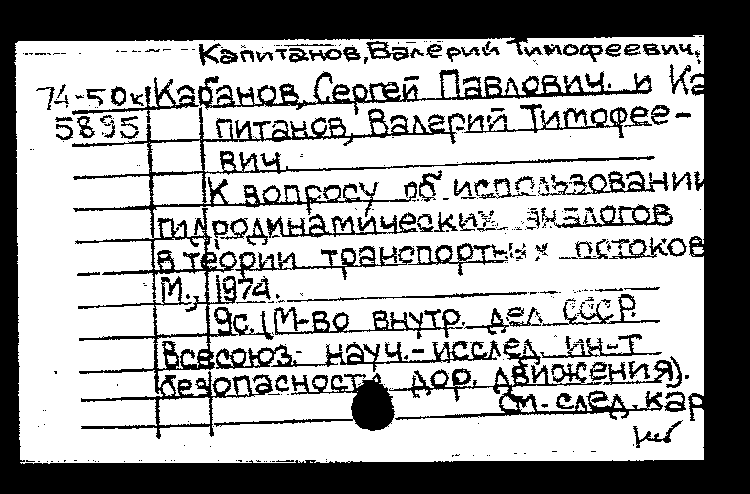 Капитанов, Валерий Тимофеевич.
74-50к Кабанов, Сергей Павлович. и Ка
5895 питанов, Валерий Тимофее-
вич.
К вопросу об использовании
гидродинамических аналогов
в теории транспортных потоков
М., 1974.
9с. (М-во внутр. дел СССР.
Всесоюз. науч.-исслед. ин-т
безопасности дор. движения).
см. след. кар